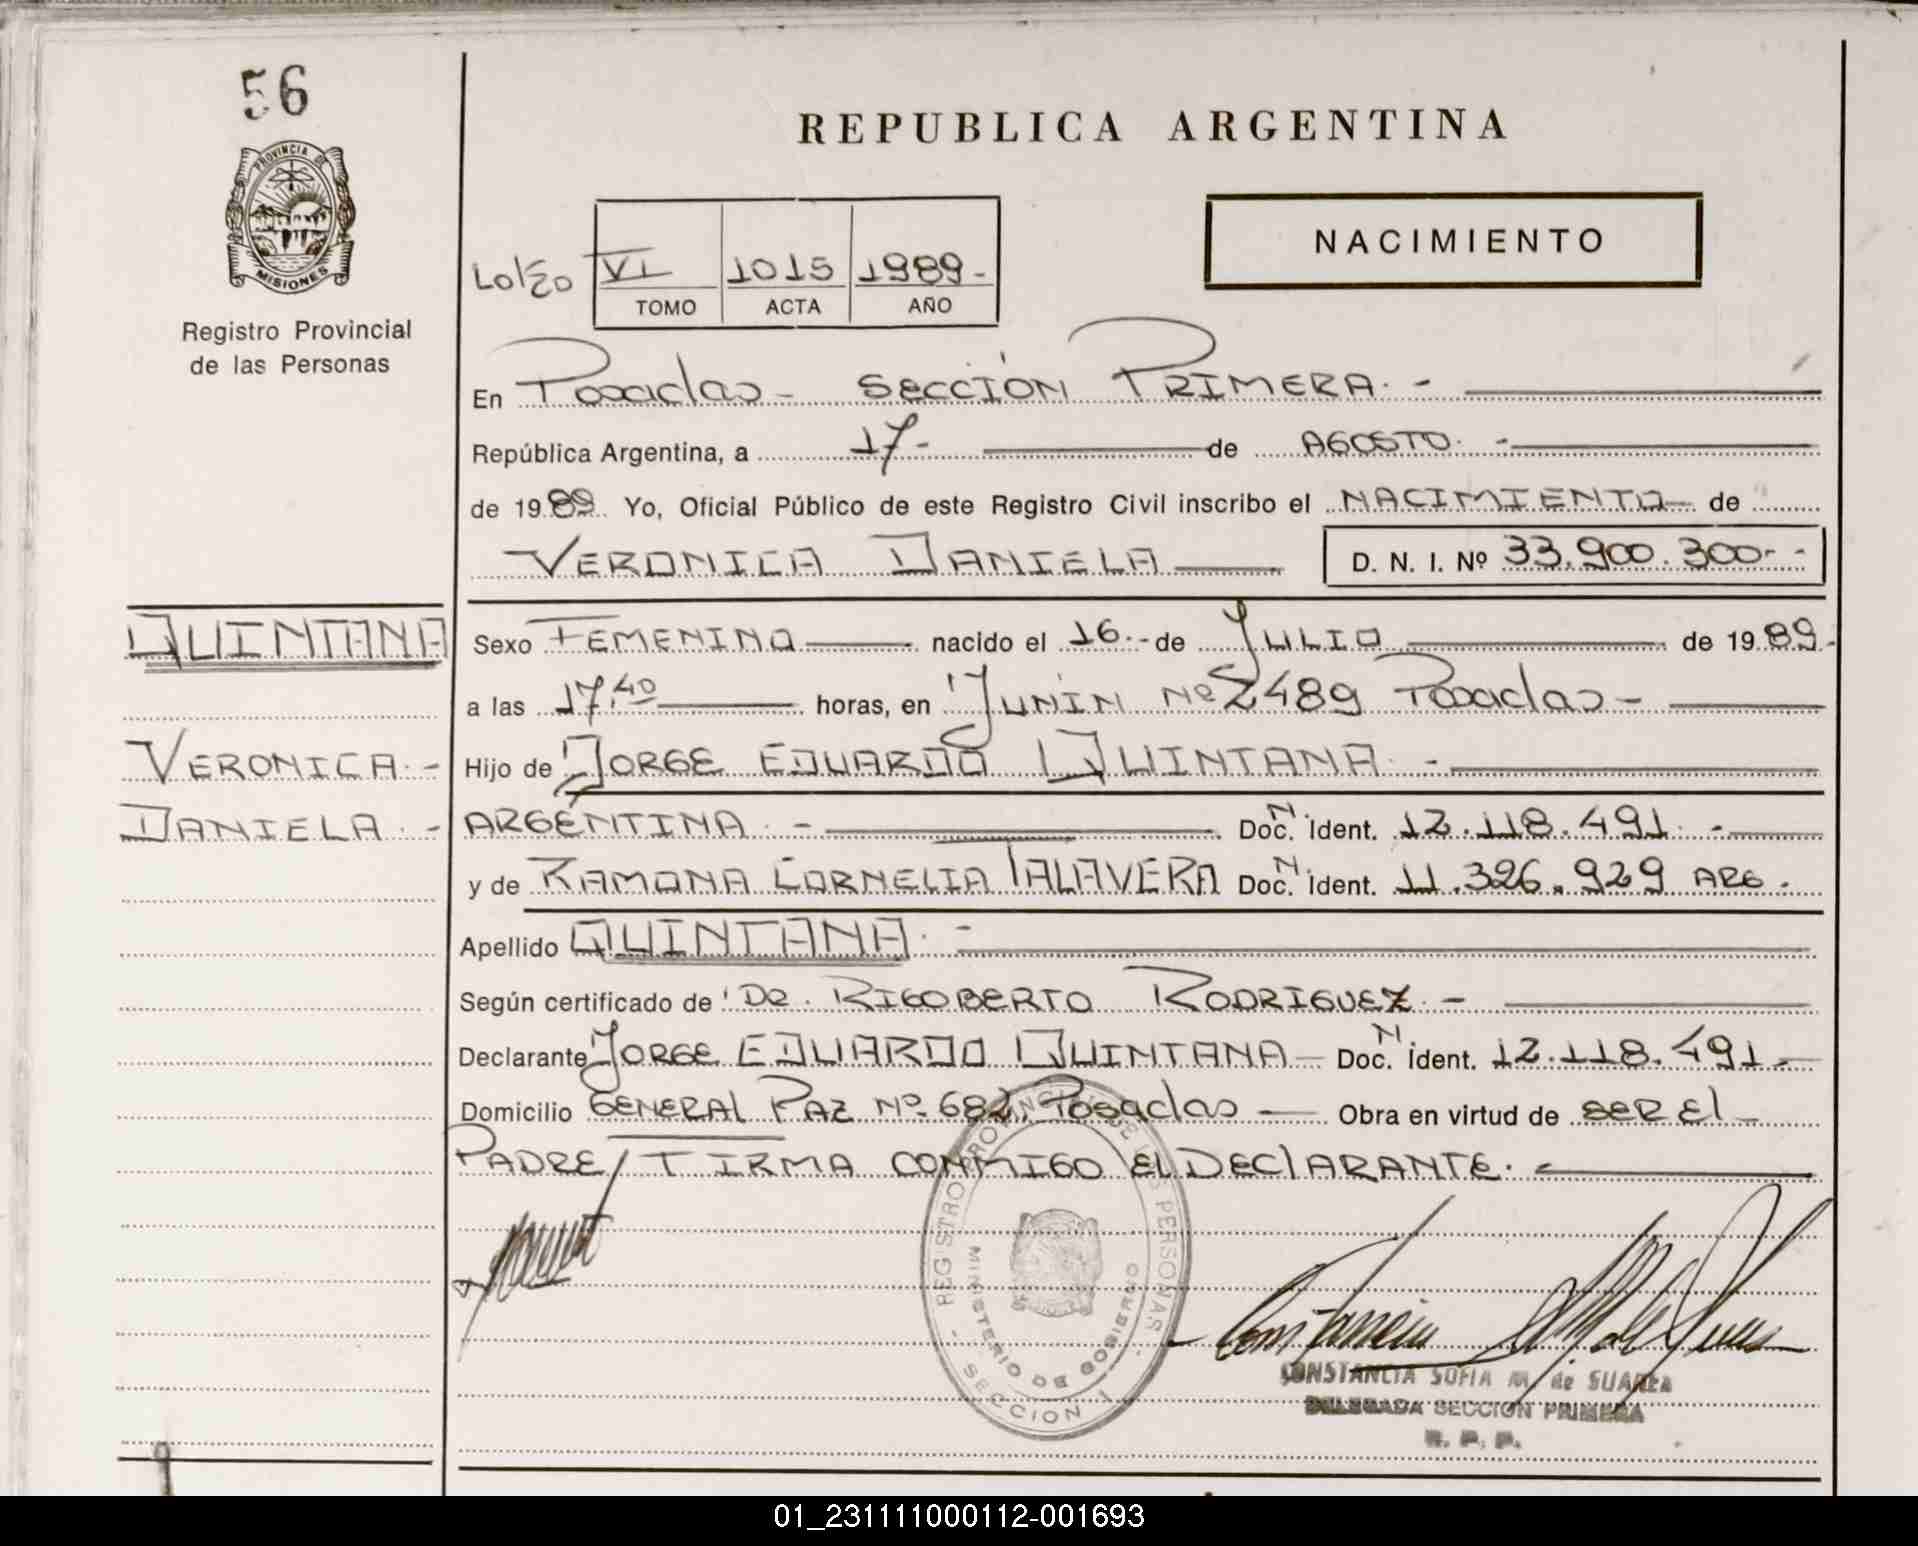 56
PROVINCIA DE
MISIONES
Registro Provincial
de las Personas
REPUBLICA ARGENTINA
NACIMIENTO
VI 1015 1989-
TOMO ACTA AÑO
En Posadas - SECCIÓN PRIMERA. -
República Argentina, a 17- de AGOSTO. -
de 1989 Yo, Oficial Público de este Registro Civil inscribo el NACIMIENTO de
VERONICA DANIELA D. N. I. Nº 33.900.300--
QUINTANA
VERONICA. -
DANIELA. -
Sexo FEMENINO nacido el 16.- de JULIO de 1989-
a las 17,40 horas, en JUNIN Nº 2489 Posadas -
Hijo de JORGE EDUARDO QUINTANA. -
ARGENTINA. - Doc. N. Ident. 12.118.491. -
y de RAMONA CORNELIA TALAVERA Doc. N. Ident. 11.326.929 ARG.
Apellido QUINTANA. -
Según certificado de DR. RIGOBERTO RODRIGUEZ. -
Declarante JORGE EDUARDO QUINTANA - Doc. N. Ident. 12.118.491.-
Domicilio GENERAL PAZ Nº 682, Posadas - Obra en virtud de SER El
PADRE/ FIRMA CONMIGO EL DEClARANTE. -
REGISTRO PROVINCIAL DE LAS PERSONAS
MINISTERIO DE GOBIERNO
- SECCION I -
CONSTANCIA SOFIA M. de SUAREZ
DELEGADA SECCION PRIMERA
R. P. P.
01_231111000112-001693